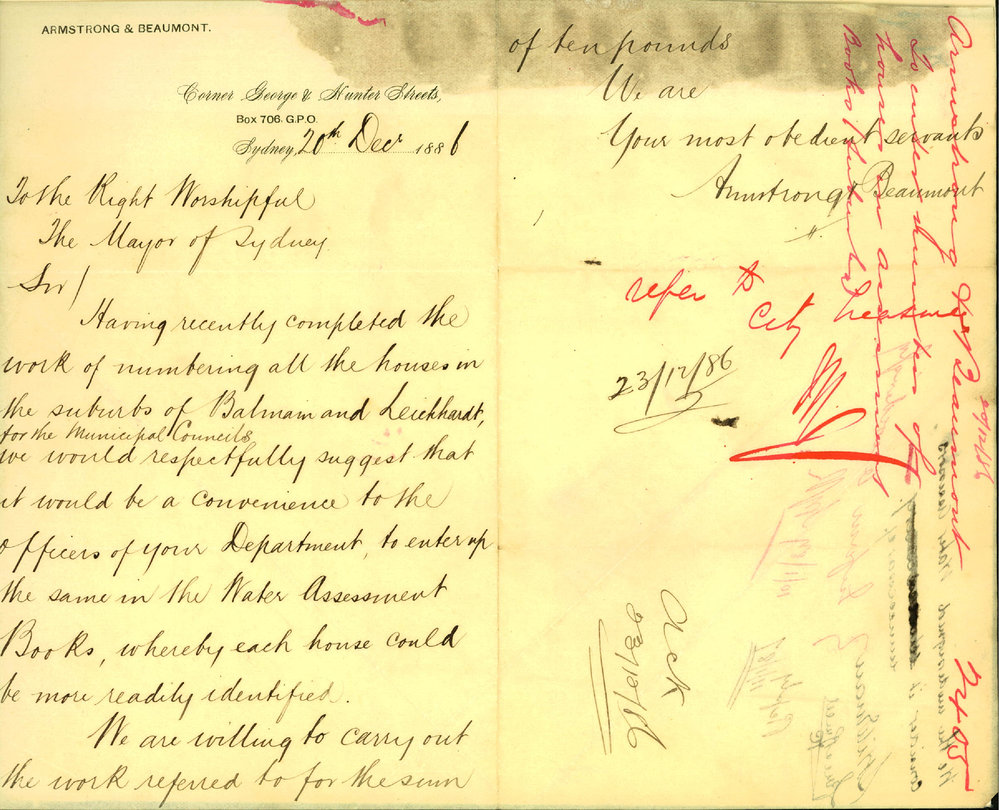 ARMSTRONG & BEAUMONT.
Corner George & Hunter Streets,
Box 706. G.P.O.
Sydney, 20th Decr 1886
To the Right Worshipful
The Mayor of Sydney
Sir/
Having recently completed the
work of numbering all the houses in
the suburbs of Balmain and Leichhardt,
for the Municipal Councils
we would respectfully suggest that
it would be a convenience to the
officers of your Department, to enter up
the same in the Water Assessment
Books, whereby each house could
be more readily identified.
We are willing to carry out
the work referred to for the sum
of ten pounds
We are
Your most obedient servants
Armstrong & Beaumont
refer to
City Treasurer
23/12/86
Ack
23/12/86
Armstrong & Beaumont
To enter numbers of
houses in assessment
Books